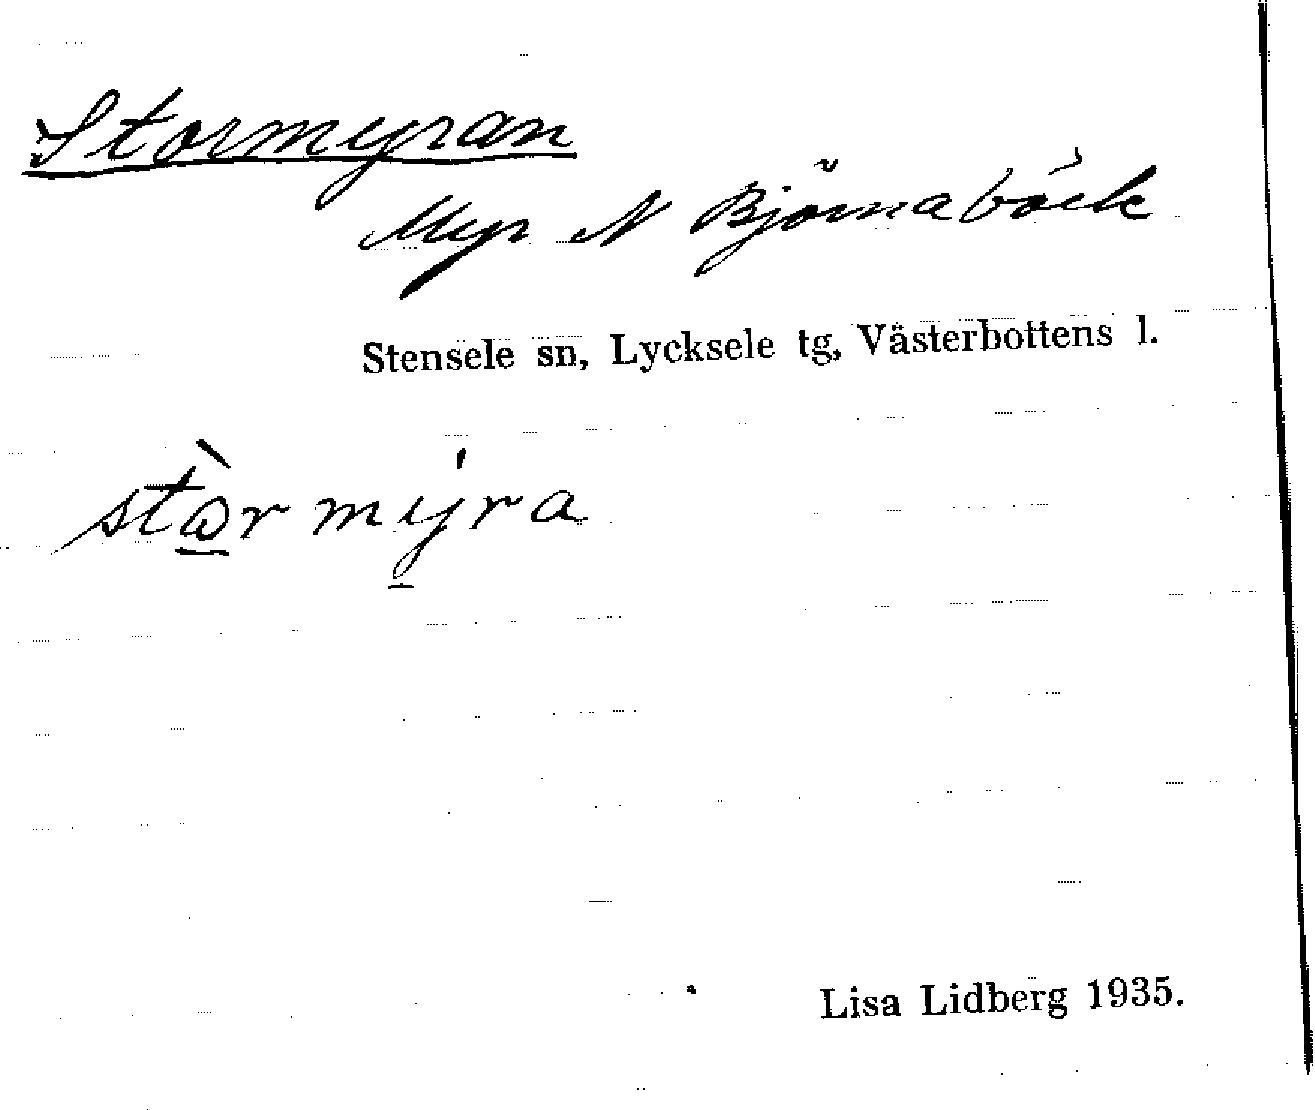 Stormyran
Myr N Björnabäck
Stensele sn, Lycksele tg, Västerbottens l.
stò̲rmý̲ra
Lisa Lidberg 1935.